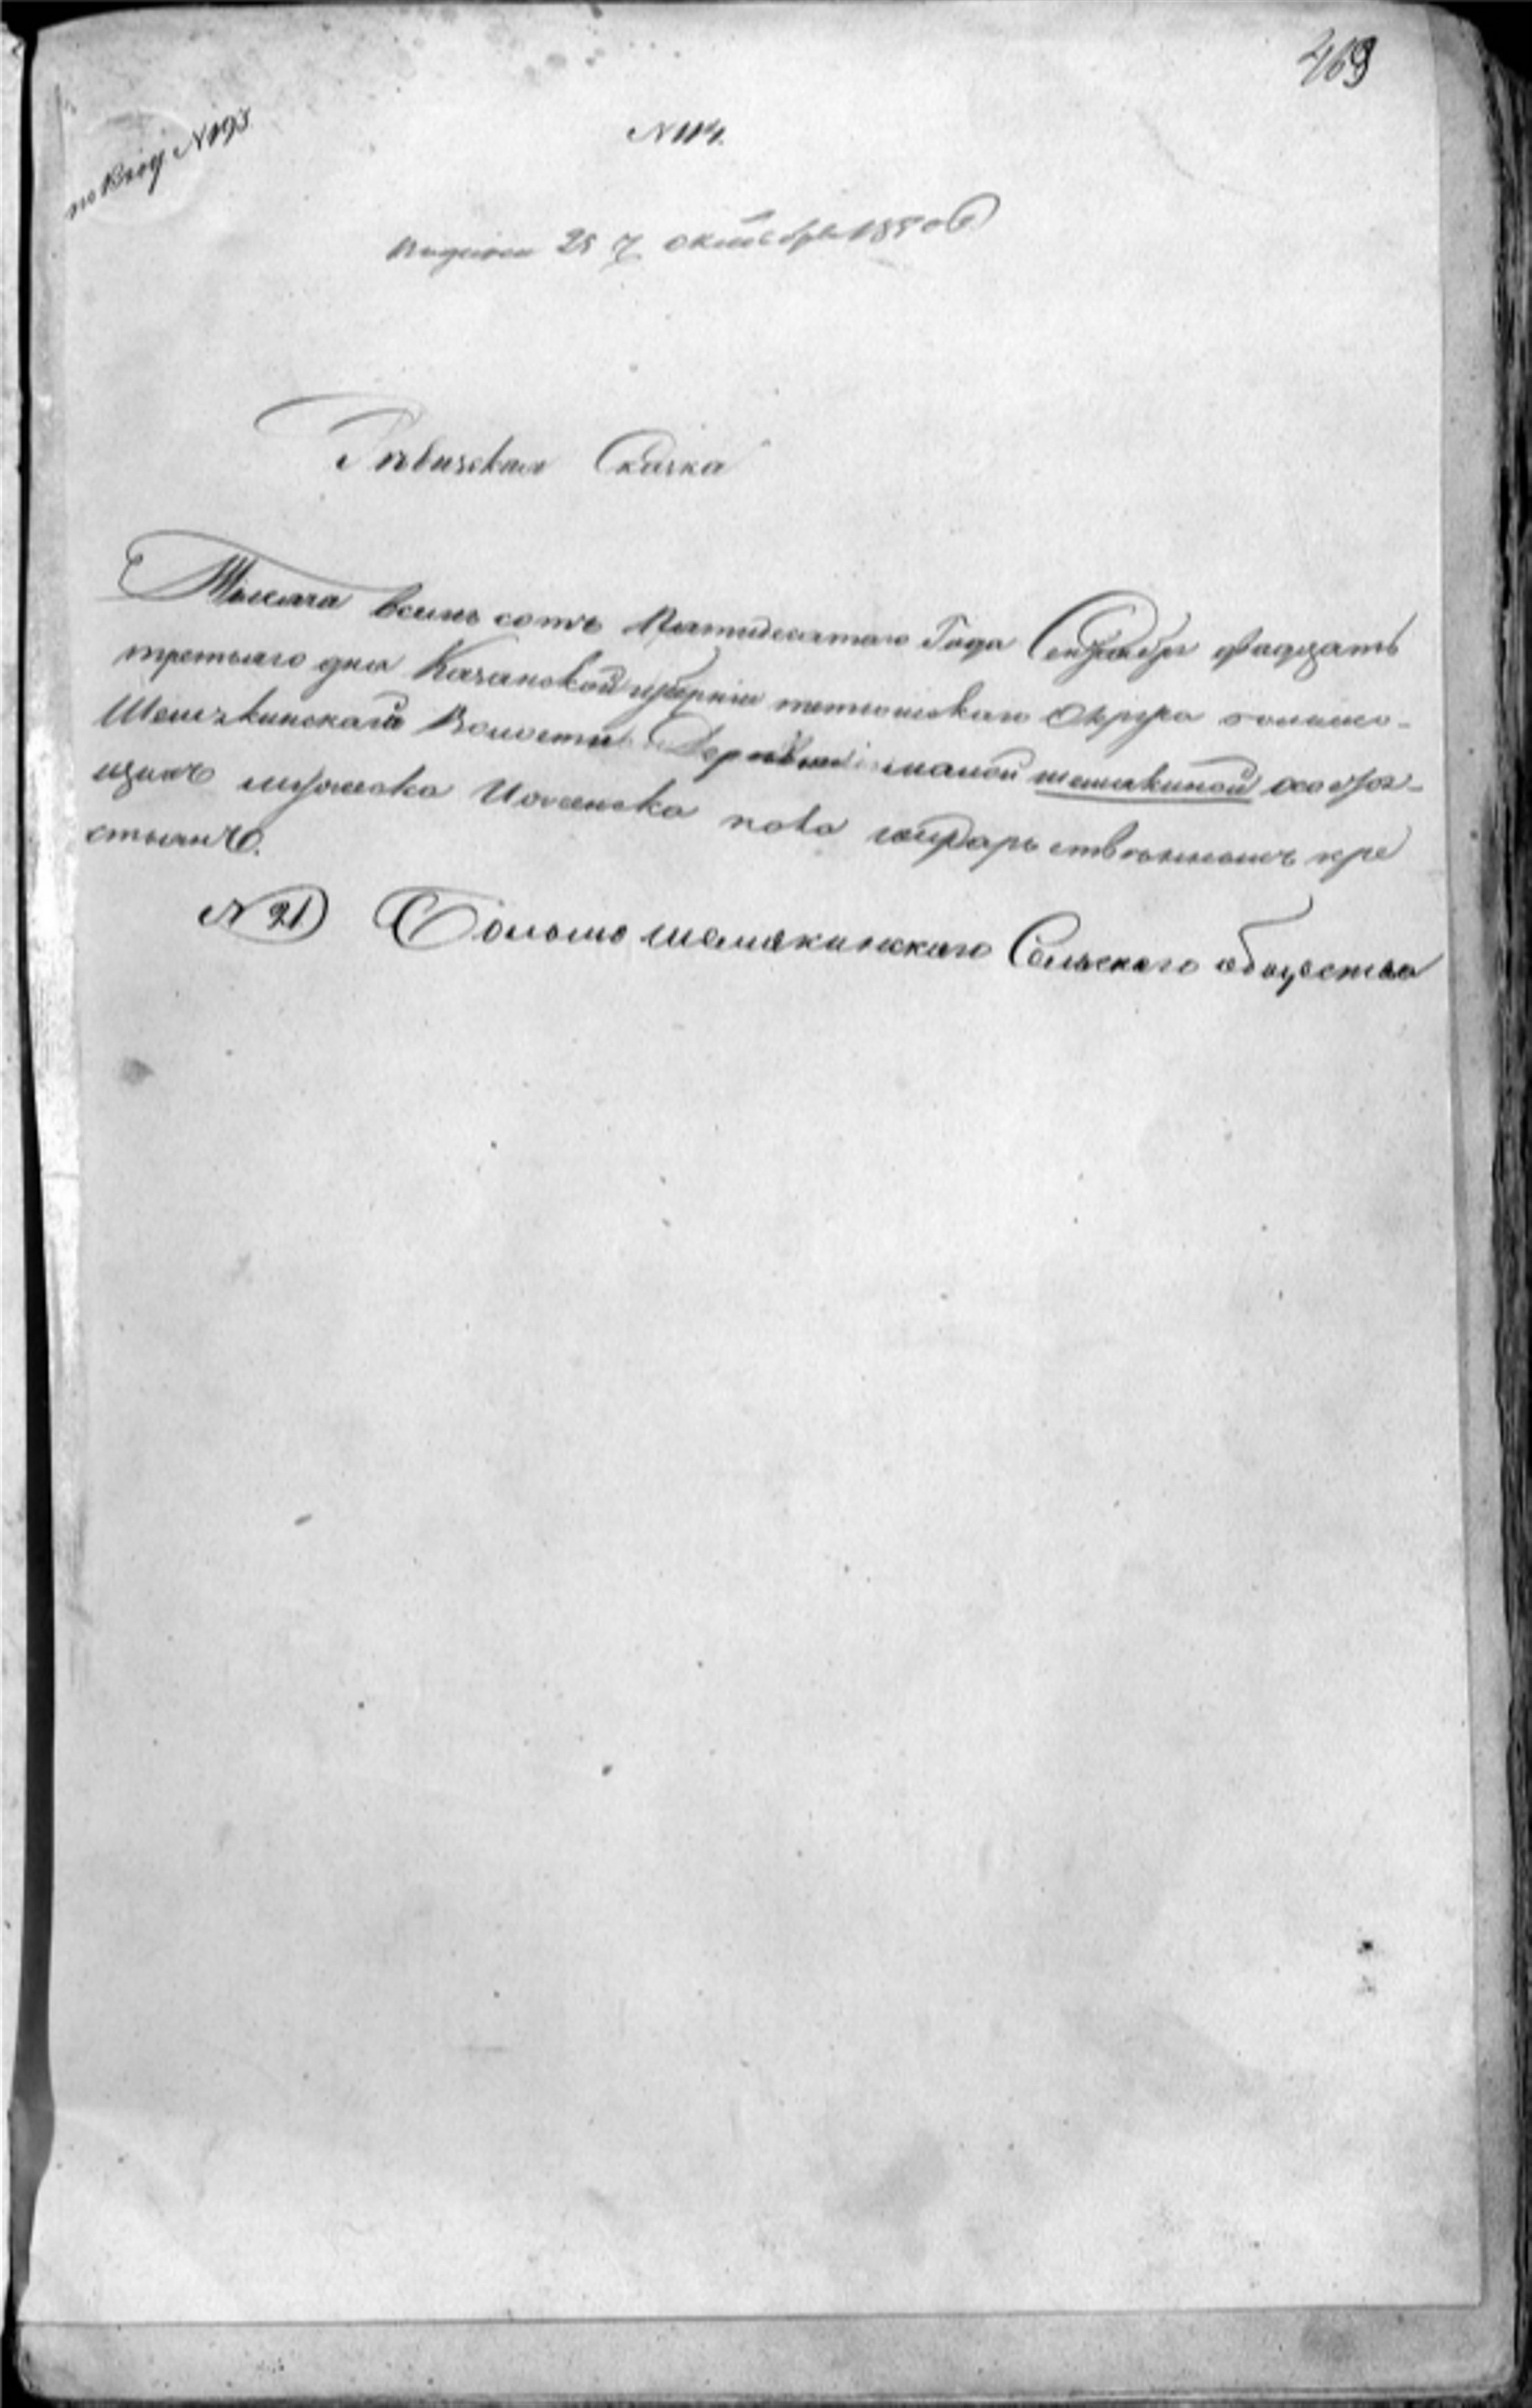 469
по вход N 193
N 114.
Подана 25 Октября 1850 г
Ревизская Сказка
Тысеча восемь сотъ Пятидесятаго Года Сентября двадцать
третьяго дня Казанской губернии тетюшскаго Округа больше-
Шемякинской Волости Деревни малой шемякиной состоя-
щихъ мужеска и женска пола государственныхъ кре
стьянъ.
N 21) Больше шемякинскаго Сельскаго общества